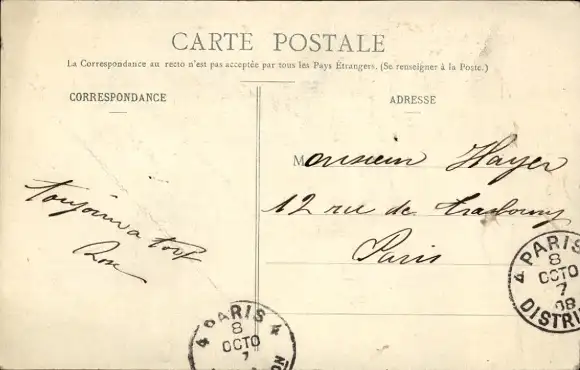 CARTE POSTALE
La Correspondance au recto n'est pas acceptée par tous les Pays Étrangers. (Se renseigner à la Poste.)
CORRESPONDANCE
ADRESSE
Monsieur Hayer
12 rue de Strasbourg
Paris
toujours a toi
PARIS
8
OCTO
7
PARIS
8
OCTO
7
08
DISTRI